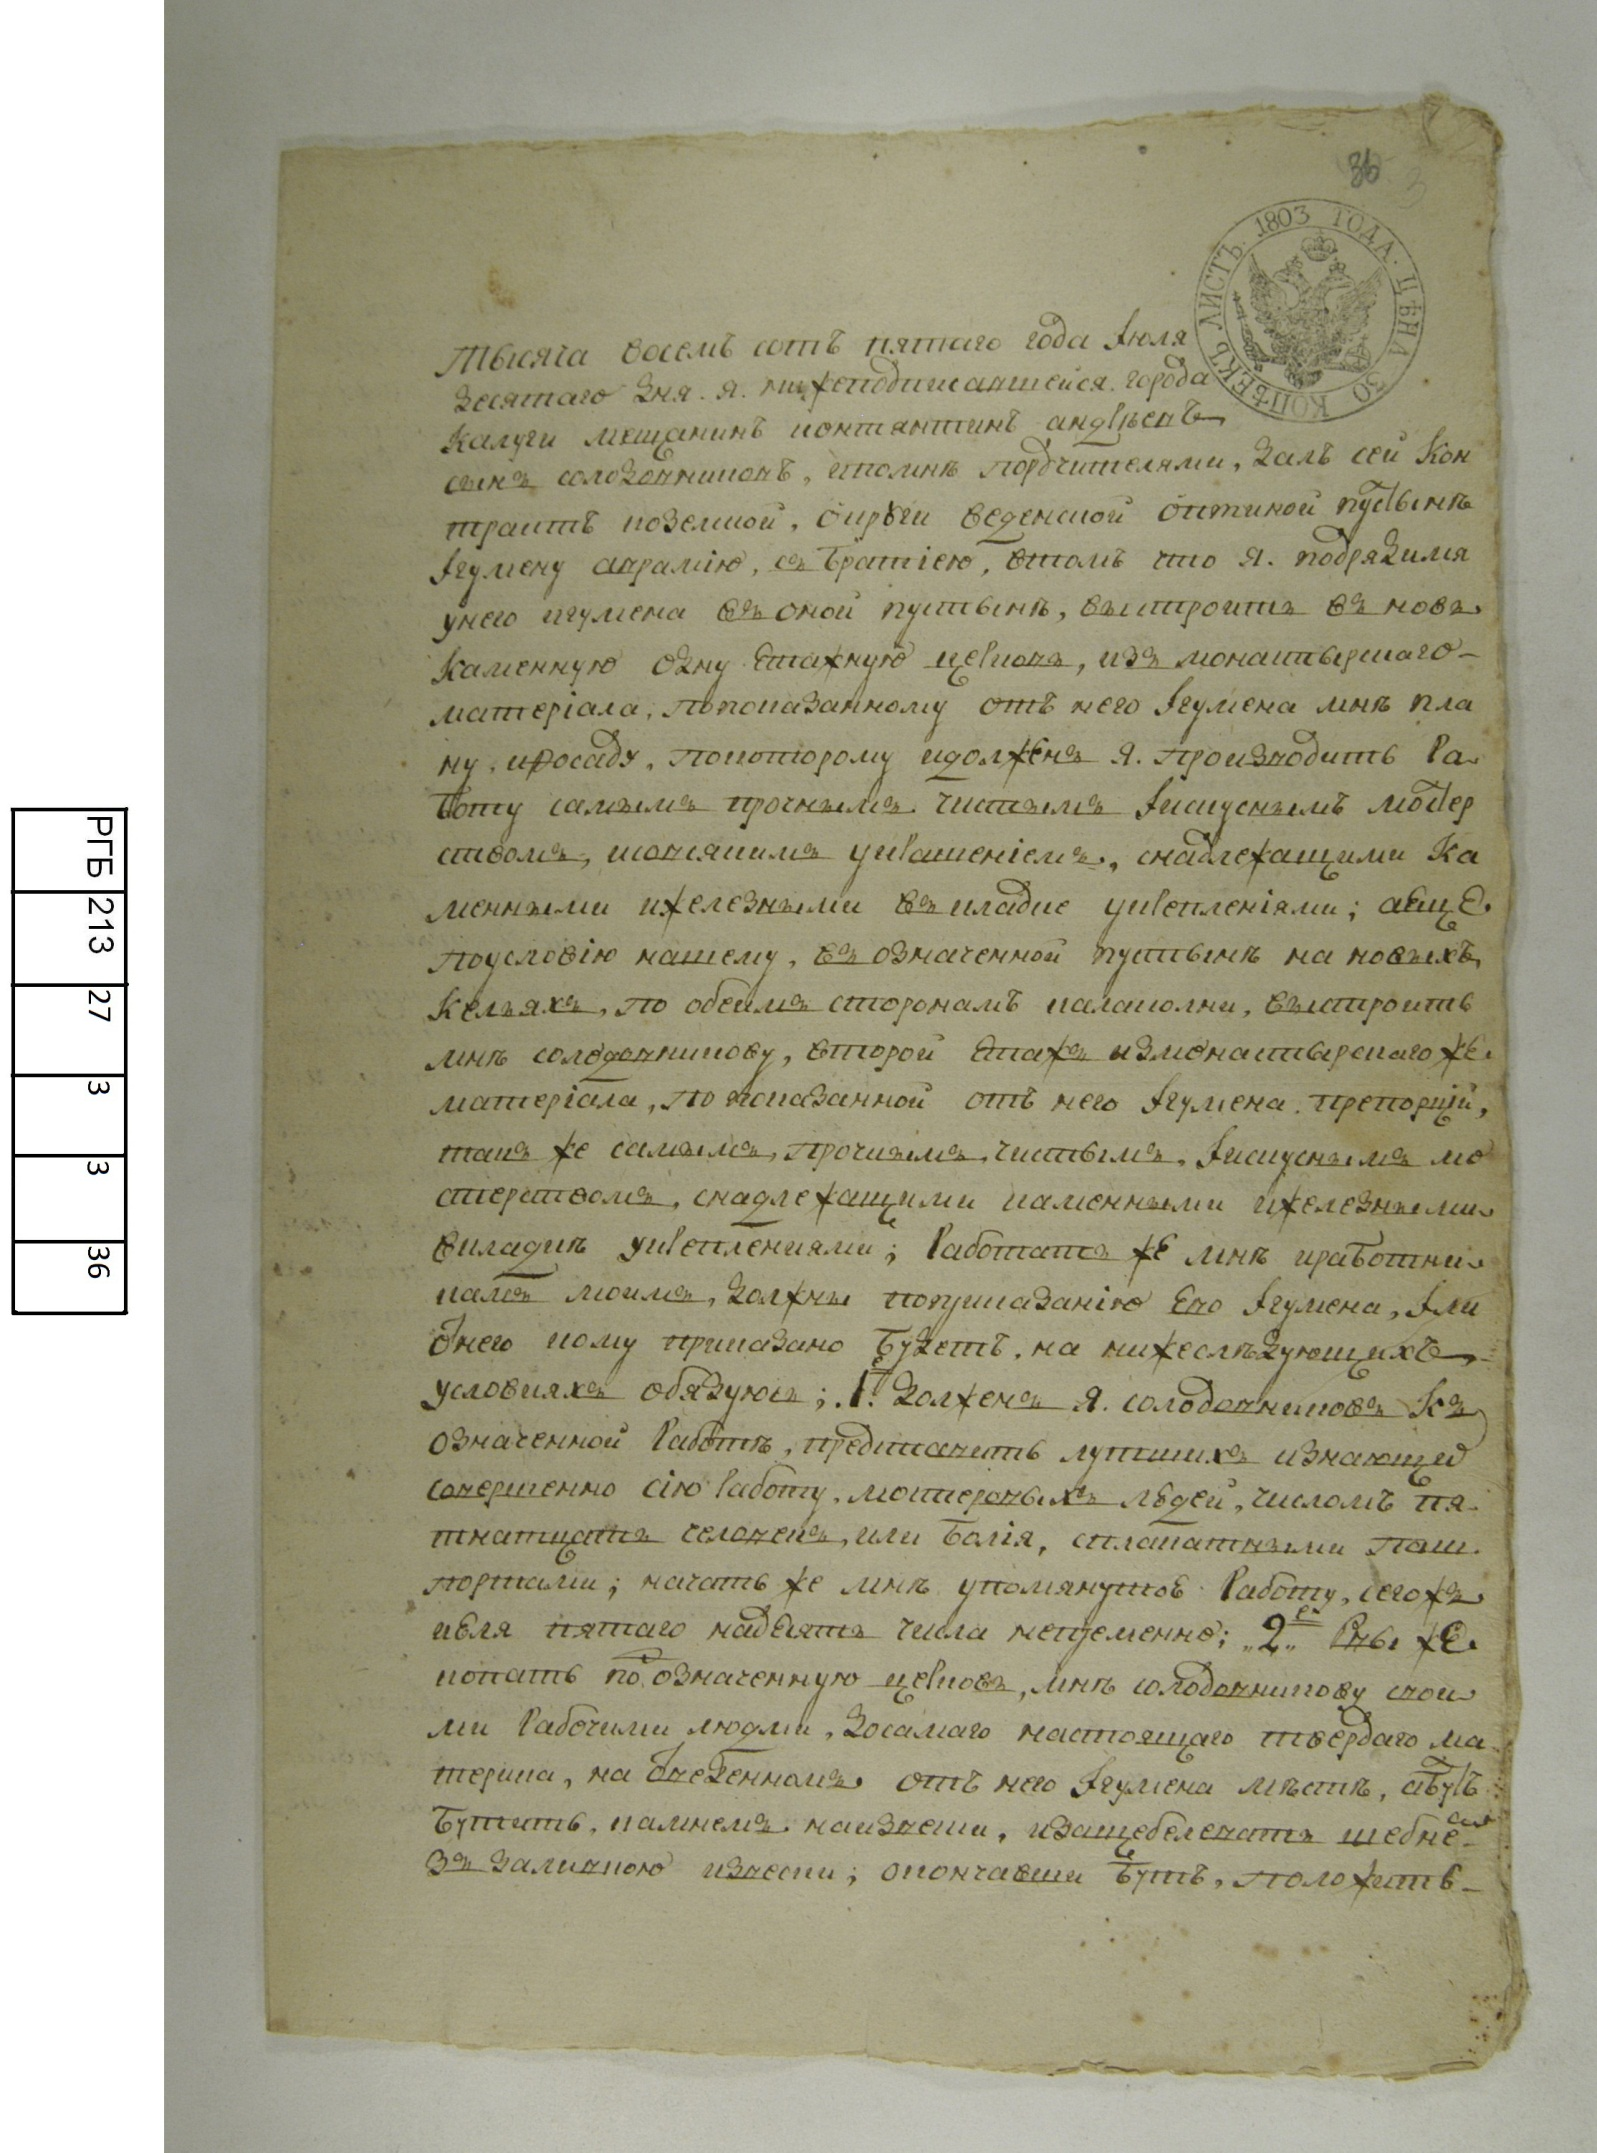 36
3
ЛИСТЪ. 1803 ГОДА. ЦѢНА 30 КОПѢЕКЪ
Тысяча восемь сотъ пятаго года Июля
десятаго дня. я. нижеподписавшейся. города
Калуги мещанинъ константинъ андреевъ
сынъ солодовниковъ, споимѣ поручителями, далъ сей Кон
трактъ козелской, округи веденской оптиной пустынѣ
Игумену аврамію, съ братіею, втомъ что я. подрядился
унего игумена въ оной пустынѣ, выстроить въ новь
каменную одну етажную церковь, изъ монастырскаго
матеріала, попоказанному отъ него Игумена мнѣ пла
ну, ифосаду, покоторому идолженъ я. производить Ра
боту самымъ прочнымъ чистымъ Искуснымъ мостер
ствомъ, исовсякимъ украшеніемъ, снадлежащими Ка
менными ижелезными въ кладке укрепленіями; аеще
поусловію нашему, въ означенной пустынѣ на новыхъ
Кельяхъ, по обеимъ сторонамъ калаколни, выстроить
мнѣ солодовникову, второй етажъ измонастырскаго же
матеріала, по показанной отъ него Игумена препорціи,
такъ же самымъ, прочнымъ, чистымъ, Искуснымъ мо
стерствомъ, снадлежащими каменными ижелезными
вкладкѣ укреплениями; Работать же мнѣ иработни
камъ моимъ, должны поприказанію Ево Игумена, Или
отнего кому приказано будетъ, на нижеслѣдующихъ
условияхъ обязуюсь; 1е. долженъ я. солодовниковъ Къ
означенной Работѣ, представить лутшихъ изнающи
совершенно сію Работу, мостеровыхъ людей, числомъ пя
тнатцать человекъ, или болія, сплакатными паш
портами; начать же мнѣ упомянутое Работу, сегожъ
июля пятаго надесять числа непременно; 2е Рвы же
копать под означенную церковь, мнѣ солодовникову свои
ми Рабочими людми, досамаго настоящаго твердаго ма
терика, на отведенномъ отъ него Игумена мѣстѣ, абутъ
бутить, камнемъ наизвести, изащебеневать щебне
заливною извести; окончавши бутъ, положить
РГБ
213
27
3
3
36